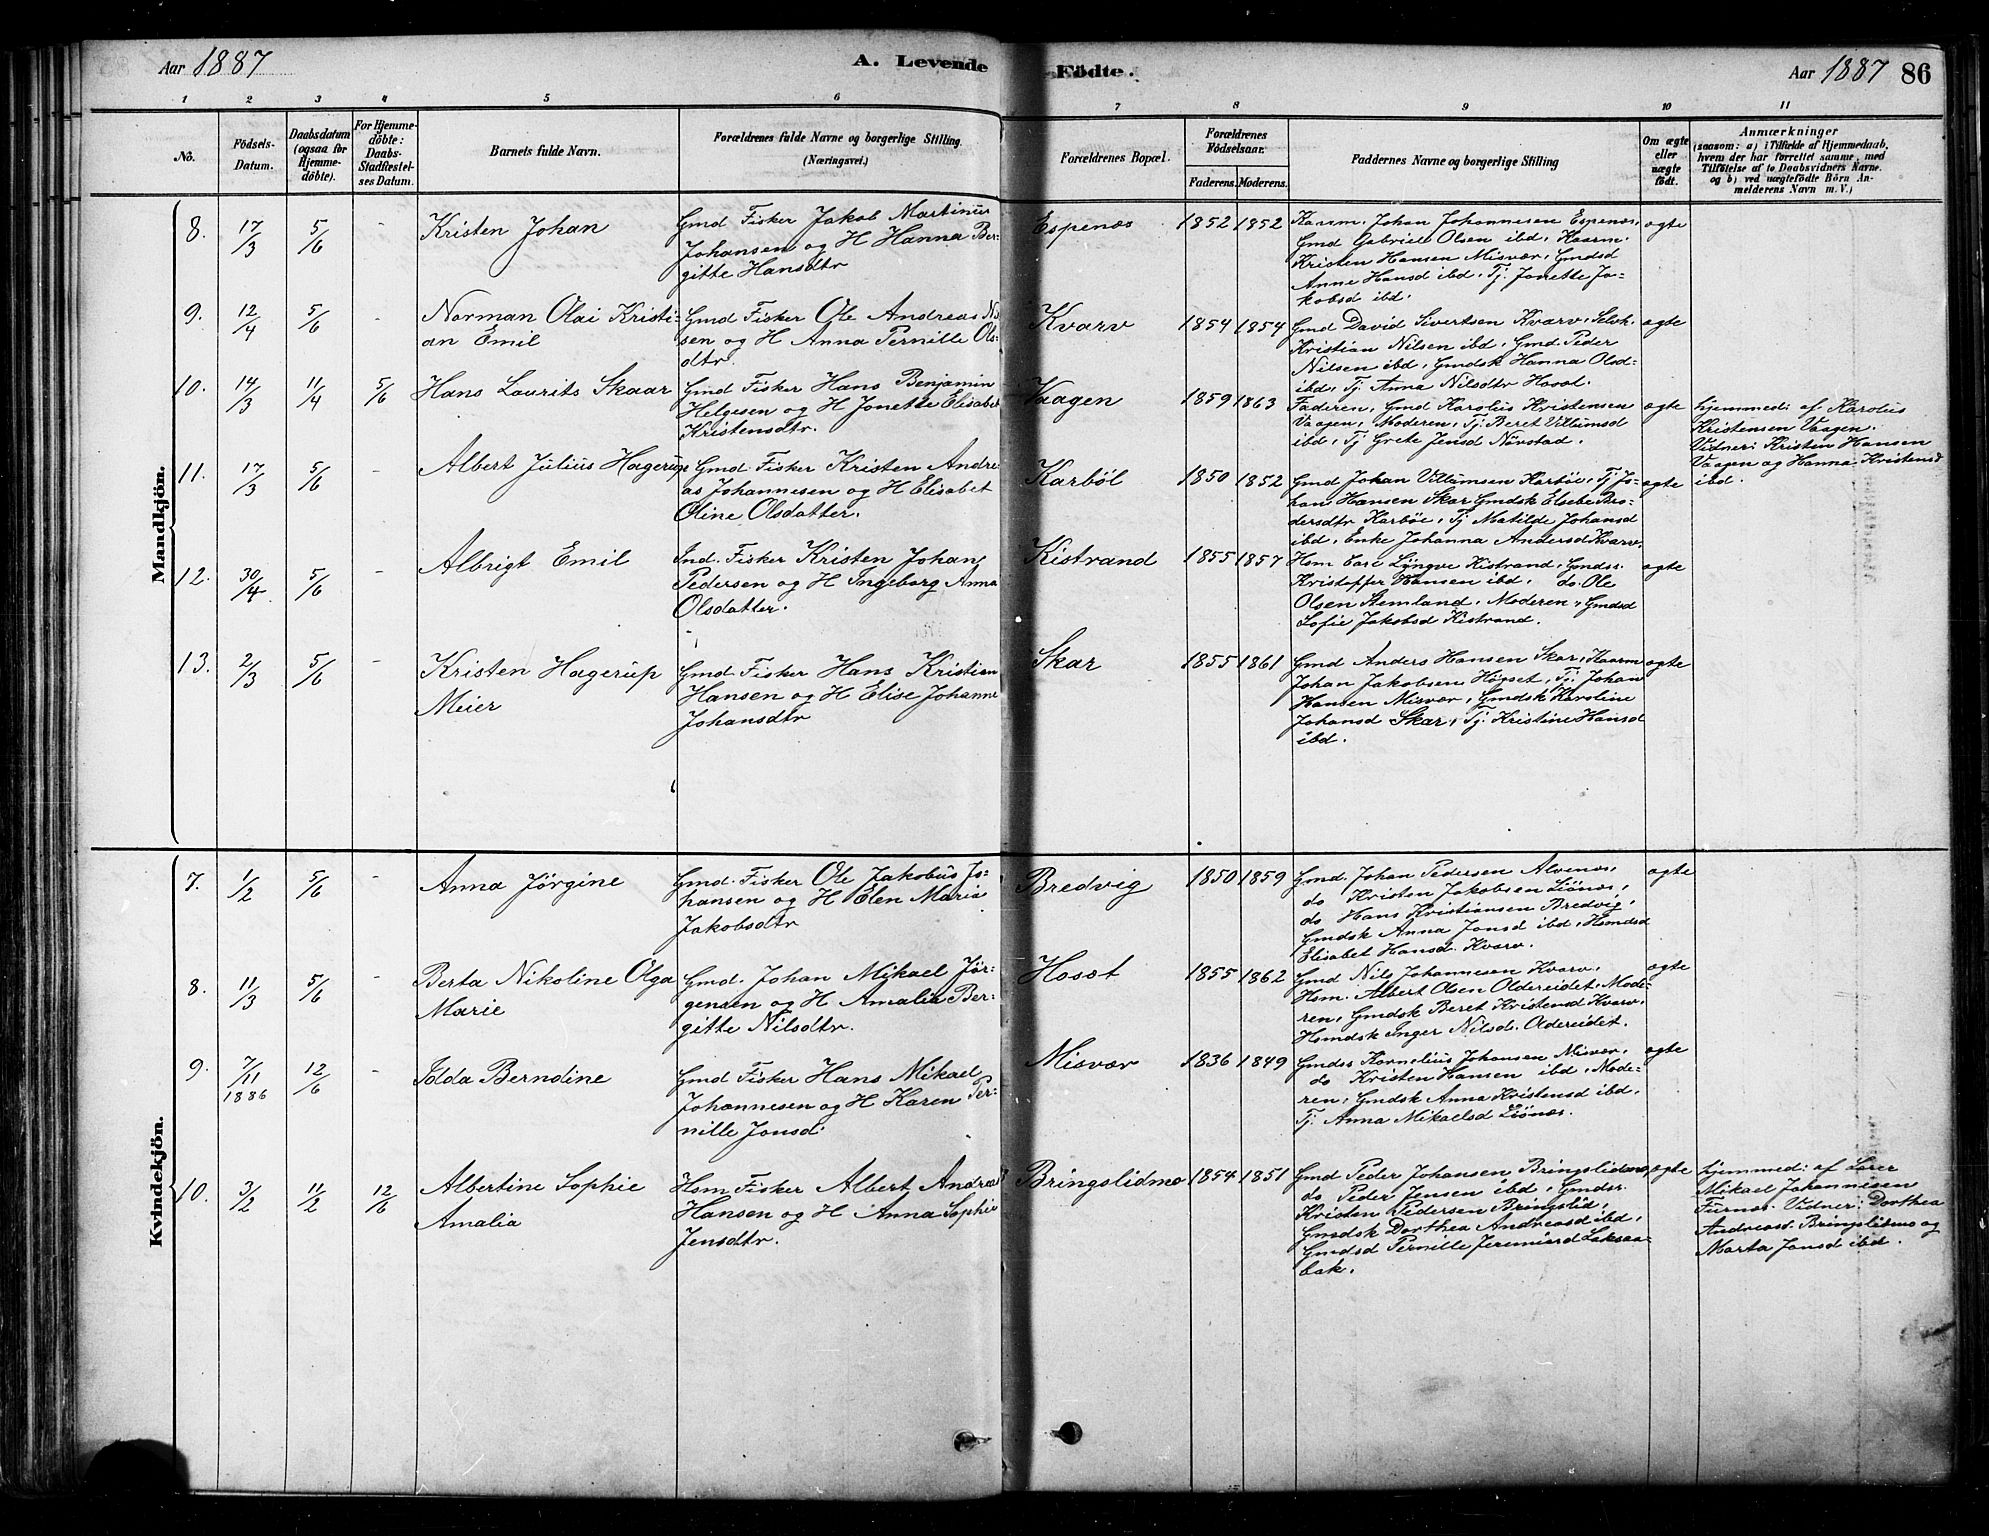 Aar 1887
A. Levende Födte.
Aar 1887 86
1 2 3 4 5 6 7 8 9 10 11
No.
Födsels-Datum.
Daabsdatum (ogsaa for Hjemme-döbte).
For Hjemme-döbte: Daabs-Stadfæstel-ses Datum.
Barnets fulde Navn.
Forældrenes fulde Navne og borgerlige Stilling. (Næringsvei.)
Forældrenes Bopæl.
Forældrenes Födselsaar.
Faderens. Moderens.
Faddernes Navne og borgerlige Stilling
Om ægte eller uægte födt.
Anmærkninger
(saasom: a) i Tilfælde af Hjemmedaab,
hvem der har forrettet samme, med
Tilföielse af to Daabsvidners Navne.
og b) ved uægtefödte Börn An-
melderens Navn m. V.)
Mandkjön.
8. 17/3 5/6 Kristen Johan
Gmd Fisker Jakob Martinus
Johansen og H Hanna Ber-
gitte Hansdtr
Espenæs 1852 1852
Kaarm. Johan Johannesen Espenæs,
Gmd Gabriel Olsen ibd, Kaarm.
Kristen Hansen Misvær, Gmdsd
Anne Hansd ibd, Tj. Jonette Ja-
kobsd ibd.
ægte
9. 12/4 5/6 - Norman Olai Kristi-
an Emil
Gmd Fisker Ole Andreas
sen og H Anna Pernille Ols-
dtr.
Kvarv 1854 1854
Gmd David Sivertsen Kvarv, Selvk.
Kristian Nilsen ibd, Gmd Peder
Nilsen ibd, Gmdsk Hanna Olsd
ibd, Tj. Anna Nilsdtr
ægte
10. 14/3 11/4 5/6 Hans Laurits Skaar
Gmd Fisker Hans Benjamin
Helgesen og H Jonette Elisabet
Kristensdtr.
Vaagen 1859 1863
Faderen, Gmd Karolus Kristensen
Vaagen, Moderen, Tj. Beret Villumsd
ibd, Tj. Grete Jensd
ægte
hjemmed: af Karolus
Kristensen Vaagen.
Vidner: Kristen Hansen
Vaagen og Hanna Kristensd
ibd.
11. 17/3 5/6 - Albert Julius Hagerup
Gmd. Fisker Kristen Andre-
as Johannesen og H Elisabet
Oline Olsdatter.
Karböl 1850 1852
Gmd Johan Villumsen Karböl, Tj Jo-
han Hansen Skar Gmdsk Elsebe
dersdtr Karböl, Tj Matilde Johansd
ibd, Enke Johanna Andersd Kvarv.
ægte
12. 30/4 5/6 - Albrigt Emil
Ind. Fisker Kristen Johan
Pedersen og H Ingeborg Anna
Olsdatter.
Kistrand 1855 1857
Hsm Carl Lyngve Kistrand, Gmdss.
Kristoffer Hansen ibd, do. Ole
Olsen Stemland, Moderen, Gmdsd
Sofie Jakobsd Kistrand.
ægte
13. 2/3 5/6 - Kristen Hagerup
Meier
Gmd Fisker Hans Kristian
Hansen og H Elise Johanne
Johansdtr
Skar 1855 1861
Gmd Anders Hansen Skar, Kaarm
Johan Jakobsen Högset, Tj. Johan
Hansen Misvær, Gmdsk Karoline
Johansd Skar, Tj. Kristine Hansd
ibd.
ægte
Kvindekjön.
7. 1/2 5/6 - Anna Jörgine
Gmd. Fisker Ole Jakobus Jo-
hansen og H Elen Maria
Jakobsdtr
Bredvig 1850 1859
Gmd. Johan Pedersen Alvenes,
do Kristen Jakobsen Liönæs,
do Hans Kristiansen Bredvig,
Gmdsk Anna Jonsd ibd, Hsmdsd
Elisabet Hansd. Kvarv.
ægte
8. 11/3 5/6 - Berta Nikoline Olga
Marie
Gmd. Johan Mikael Jör-
gensen og H Amalia Ber-
gitte Nilsdtr.
Hoset 1855 1862
Gmd Nils Johannesen Kvarv,
Hsm. Albert Olsen Oldereidet, Mode-
ren, Gmdsk Beret Kristensd Kvarv,
Hsmdsk Inger Nilsd. Oldereidet.
ægte
9. 7/11 1886 12/6 - Idda Berndine
Gmd Fisker Hans Mikael
Johannesen og H Karen Per-
nille Jonsd:
Misvær 1836 1849
Gmdss Kornelius Johansen Misvær,
do Kristen Hansen ibd, Mode-
ren, Gmdsk Anna Kristensd ibd,
Tj. Anna Mikaelsd Liönæs.
ægte
10. 3/2 11/2 12/6 Albertine Sophie
Amalia
Hsm Fisker Albert Andreas
Hansen og H Anna Sophie
Jensdtr.
Bringslidmo 1854 1851
Gmd Peder Johansen Bringslidmo,
do Peder Jensen ibd, Gmdss.
Kristen Pedersen Bringslid,
Gmdsk Dorthea Andreasd ibd,
Gmdsd Pernille Jeremiasd Laksaa-
bak.
ægte
hjemmed: af Lærer
Mikael Johannesen
Furnes. Vidner: Dorthea
Andreasd. Bringslidmo og
Marta Jonsd ibd.